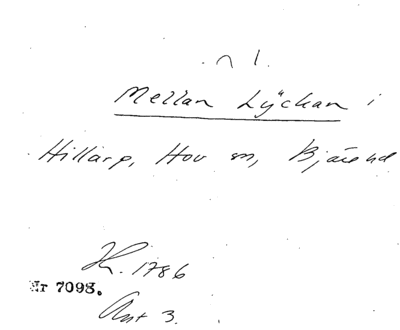 n 1.
Mellan Lyckan i
Hillarp, Hov sn, Bjäre hd
H. 1786
Nr 7098.
Akt 3.